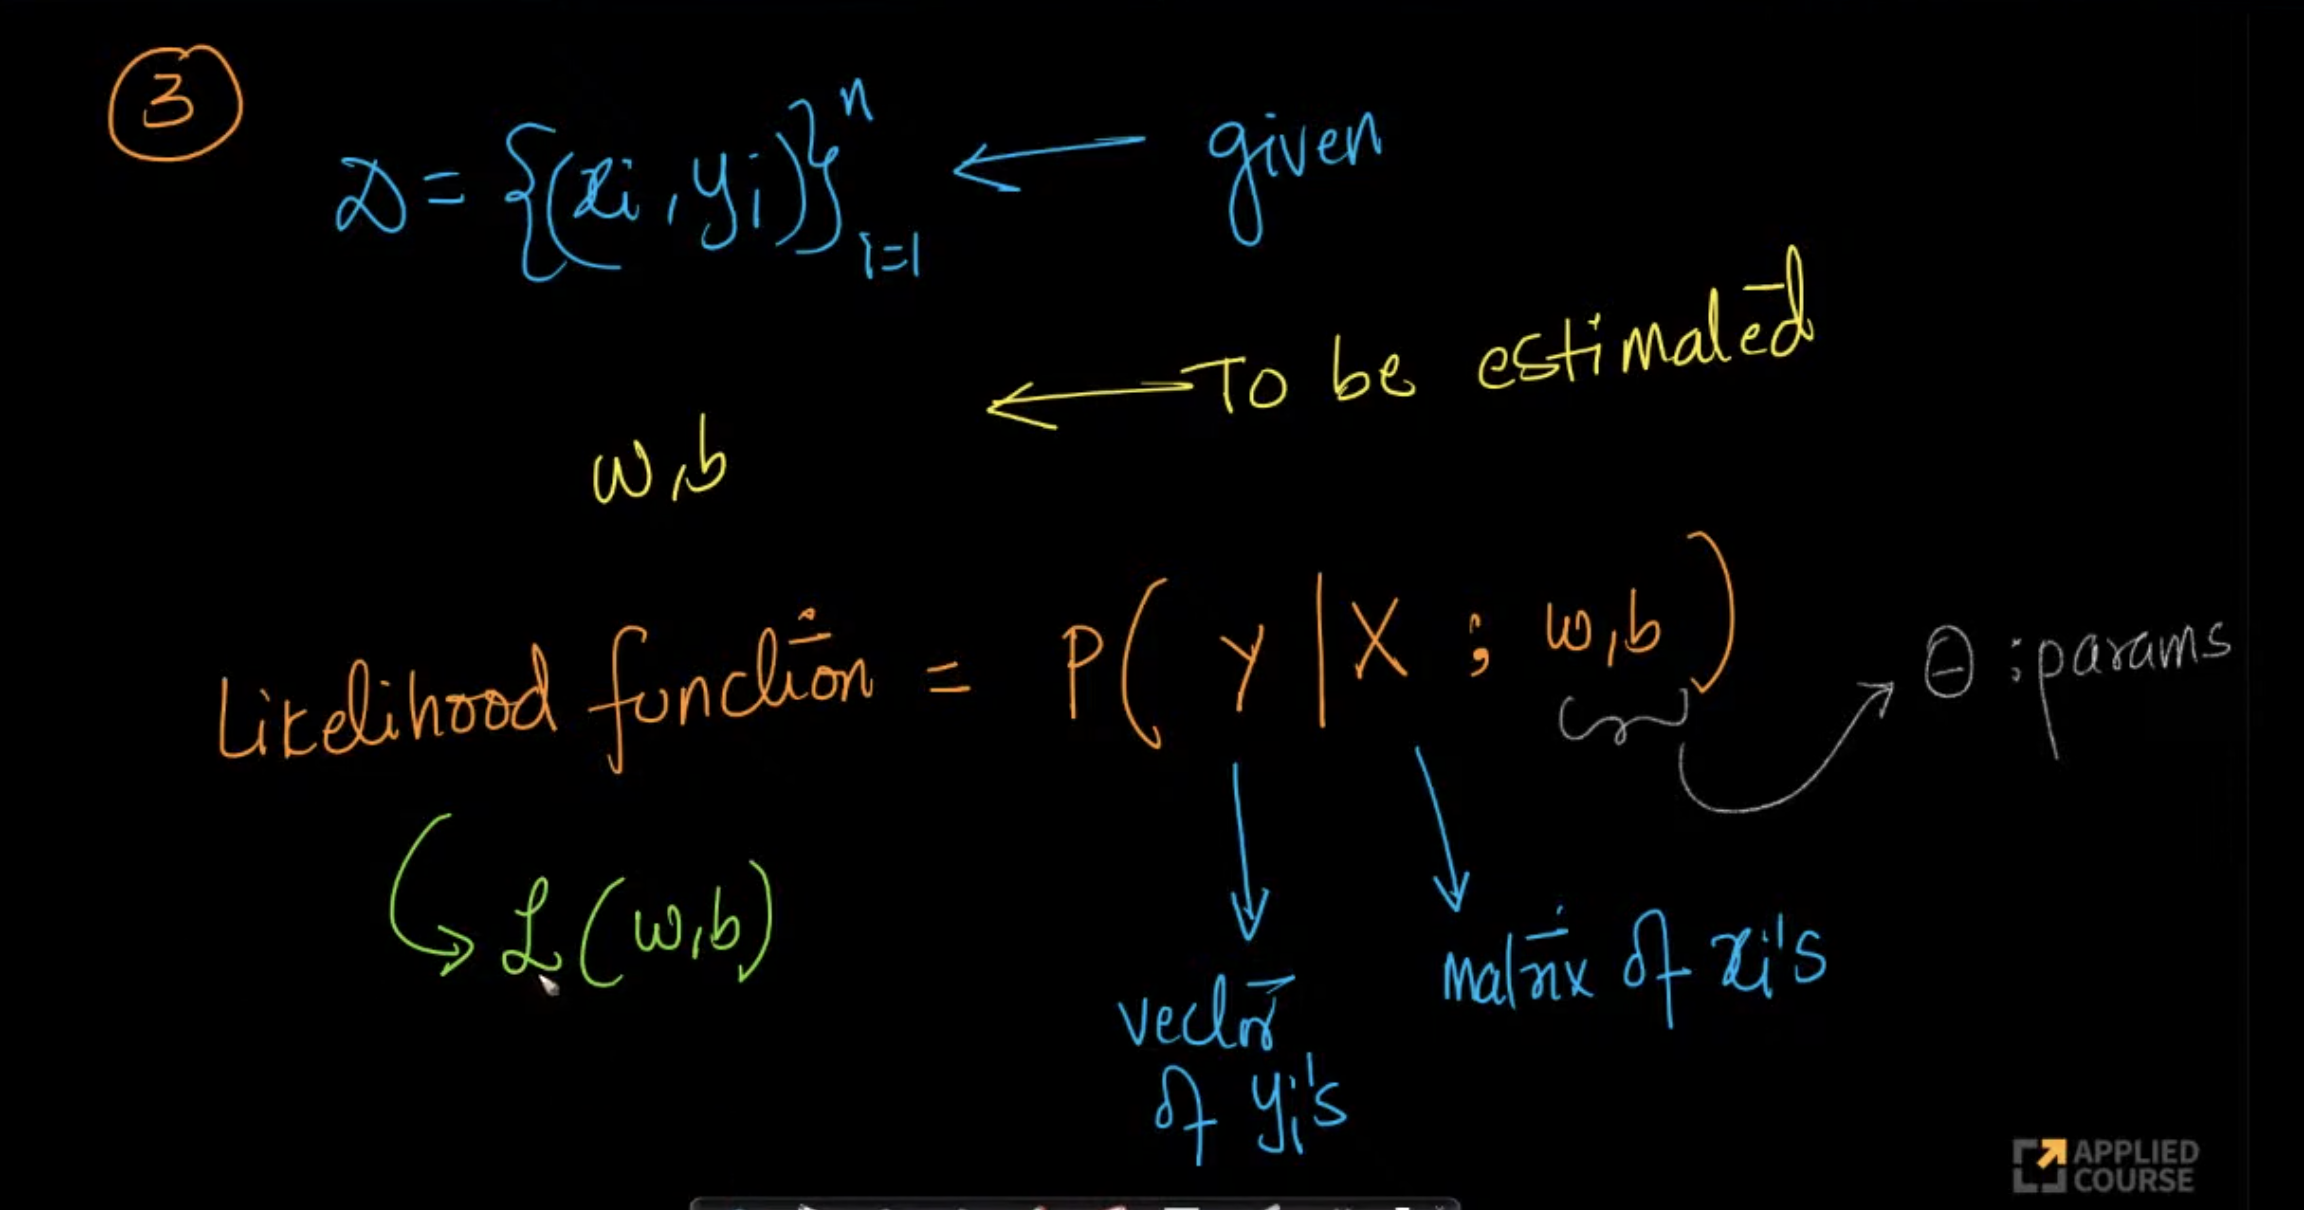 3
D = {(xi, yi)}ⁿ i=1 ← given
w,b ← To be estimated
Likelihood function = P(Y|X; w,b) → θ: params
→ L(w,b)
vector of yi's
matrix of xi's
APPLIED
COURSE